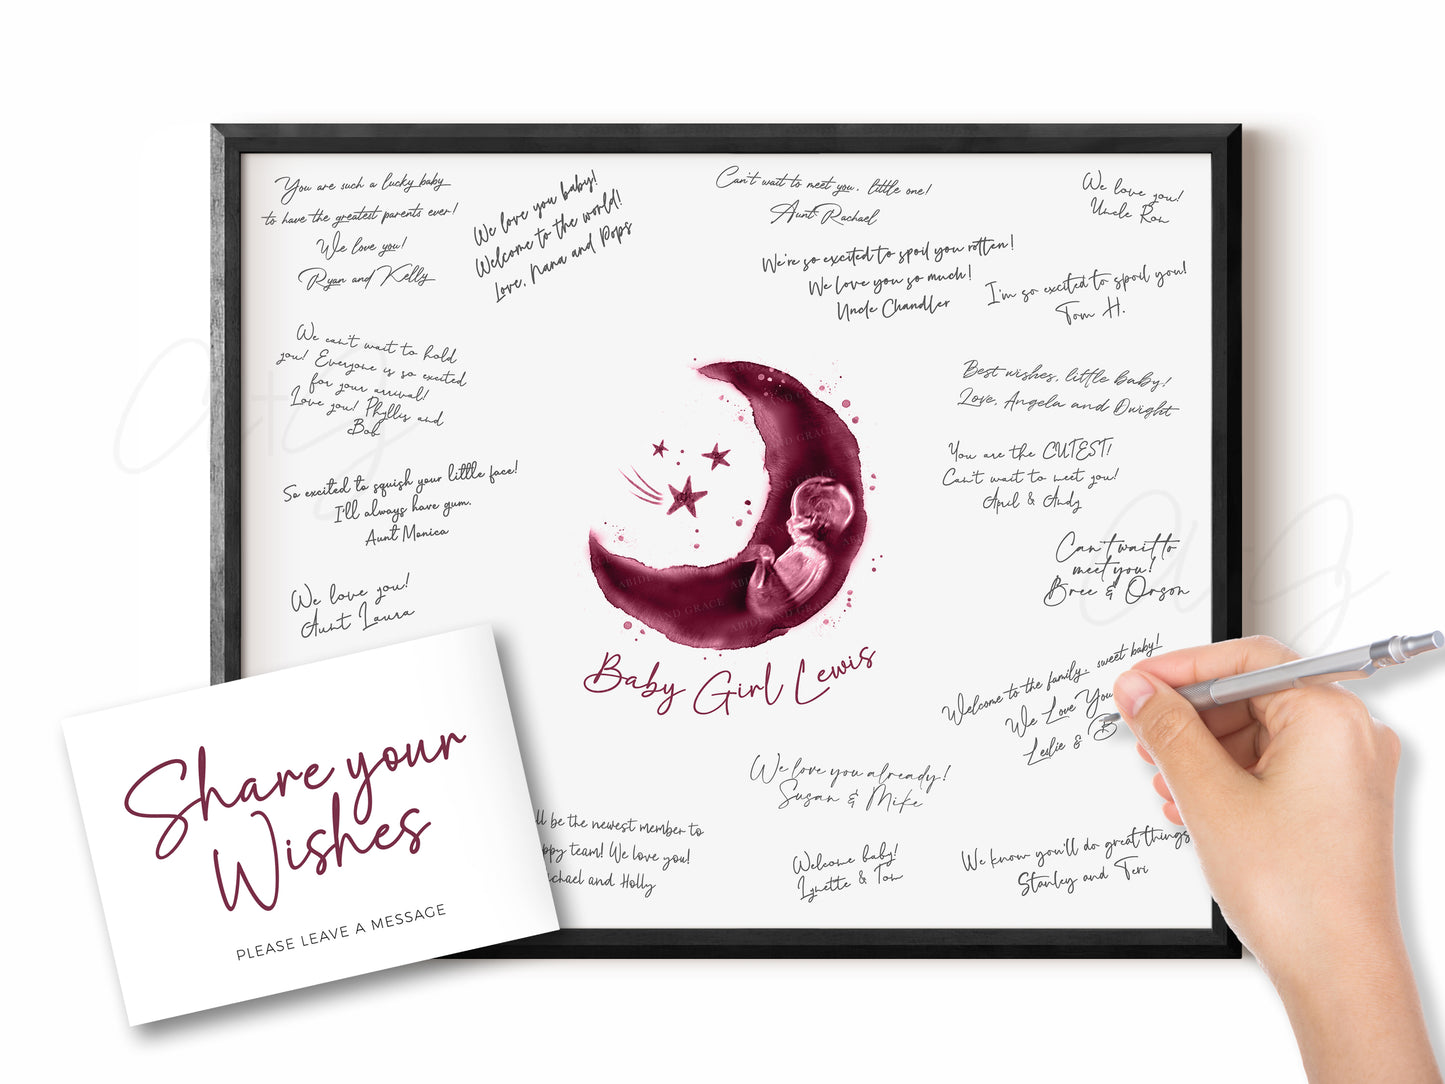 You are such a lucky baby
to have the greatest parents ever!
We love you!
Ryan and Kelly
We love you baby!
Welcome to the world!
Love, Nana and Pops
Can't wait to meet you, little one!
Aunt Rachael
We love you!
Uncle Ron
We're so excited to spoil you rotten!
We love you so much!
Uncle Chandler
I'm so excited to spoil you!
Tom H.
We can't wait to hold
you! Everyone is so excited
for your arrival!
Love you! Phyllis and
Bob
Best wishes, little baby!
Love, Angela and Dwight
You are the CUTEST!
Can't wait to meet you!
April & Andy
So excited to squish your little face!
I'll always have gum.
Aunt Monica
Can't wait to
meet you!
Bree & Orson
We love you!
Aunt Laura
ABIDE AND GRACE
Baby Girl Lewis
Welcome to the family, sweet baby!
We Love You
Leslie & B
We love you already!
Susan & Mike
ll be the newest member to
ppy team! We love you!
ichael and Holly
Welcome baby!
Lynette & Tom
We know you'll do great things
Stanley and Teri
Share your
Wishes
PLEASE LEAVE A MESSAGE